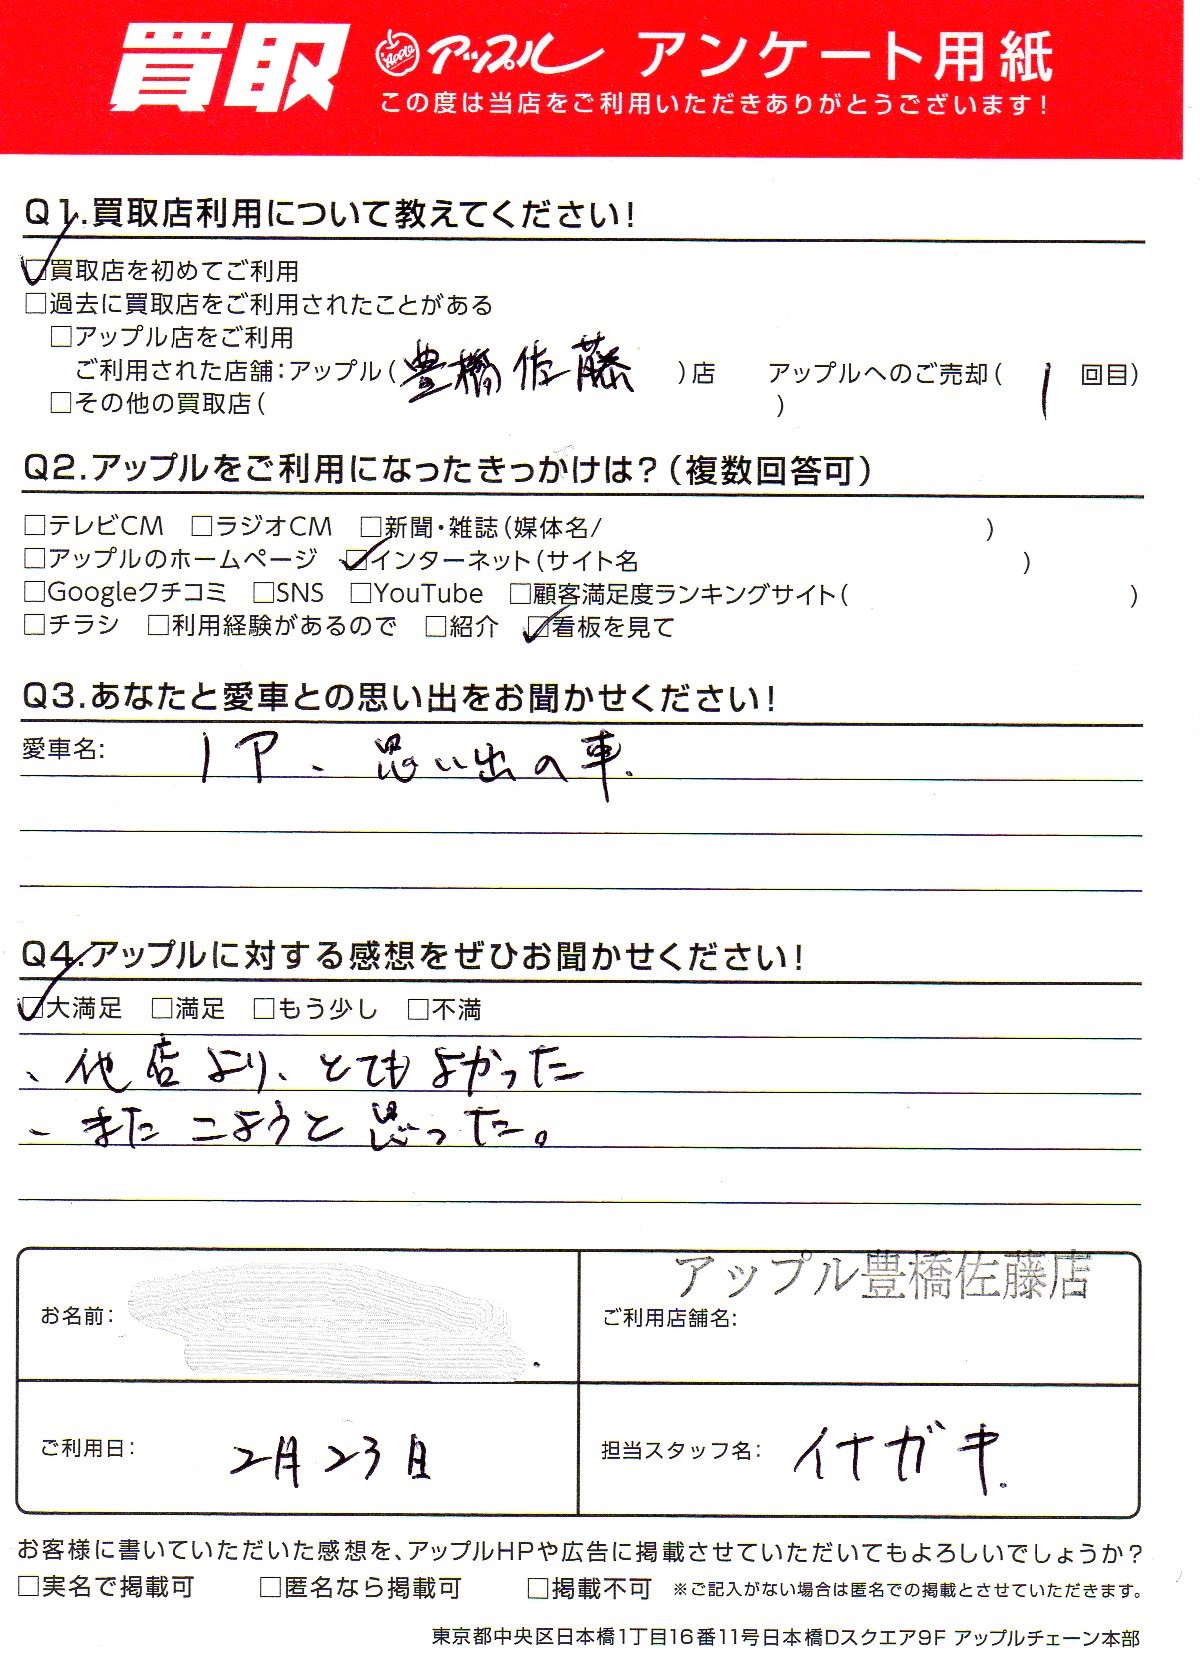 買取 Apple アップル アンケート用紙
この度は当店をご利用いただきありがとうございます!
Q1.買取店利用について教えてください!
□買取店を初めてご利用
□過去に買取店をご利用されたことがある
□アップル店をご利用
ご利用された店舗:アップル(豊橋佐藤)店 アップルへのご売却(1回目)
□その他の買取店( )
Q2.アップルをご利用になったきっかけは?(複数回答可)
□テレビCM □ラジオCM □新聞・雑誌(媒体名/ )
□アップルのホームページ □インターネット(サイト名 )
□Googleクチコミ □SNS □YouTube □顧客満足度ランキングサイト( )
□チラシ □利用経験があるので □紹介 □看板を見て
Q3.あなたと愛車との思い出をお聞かせください!
愛車名: ノア、思い出の車.
Q4.アップルに対する感想をぜひお聞かせください!
□大満足 □満足 □もう少し □不満
、他店より、とてもよかった
、またこようと思った。
お名前:
アップル豊橋佐藤店
ご利用店舗名:
ご利用日: 2月23日
担当スタッフ名: イナガキ.
お客様に書いていただいた感想を、アップルHPや広告に掲載させていただいてもよろしいでしょうか?
□実名で掲載可 □匿名なら掲載可 □掲載不可 ※ご記入がない場合は匿名での掲載とさせていただきます。
東京都中央区日本橋1丁目16番11号日本橋Dスクエア9F アップルチェーン本部